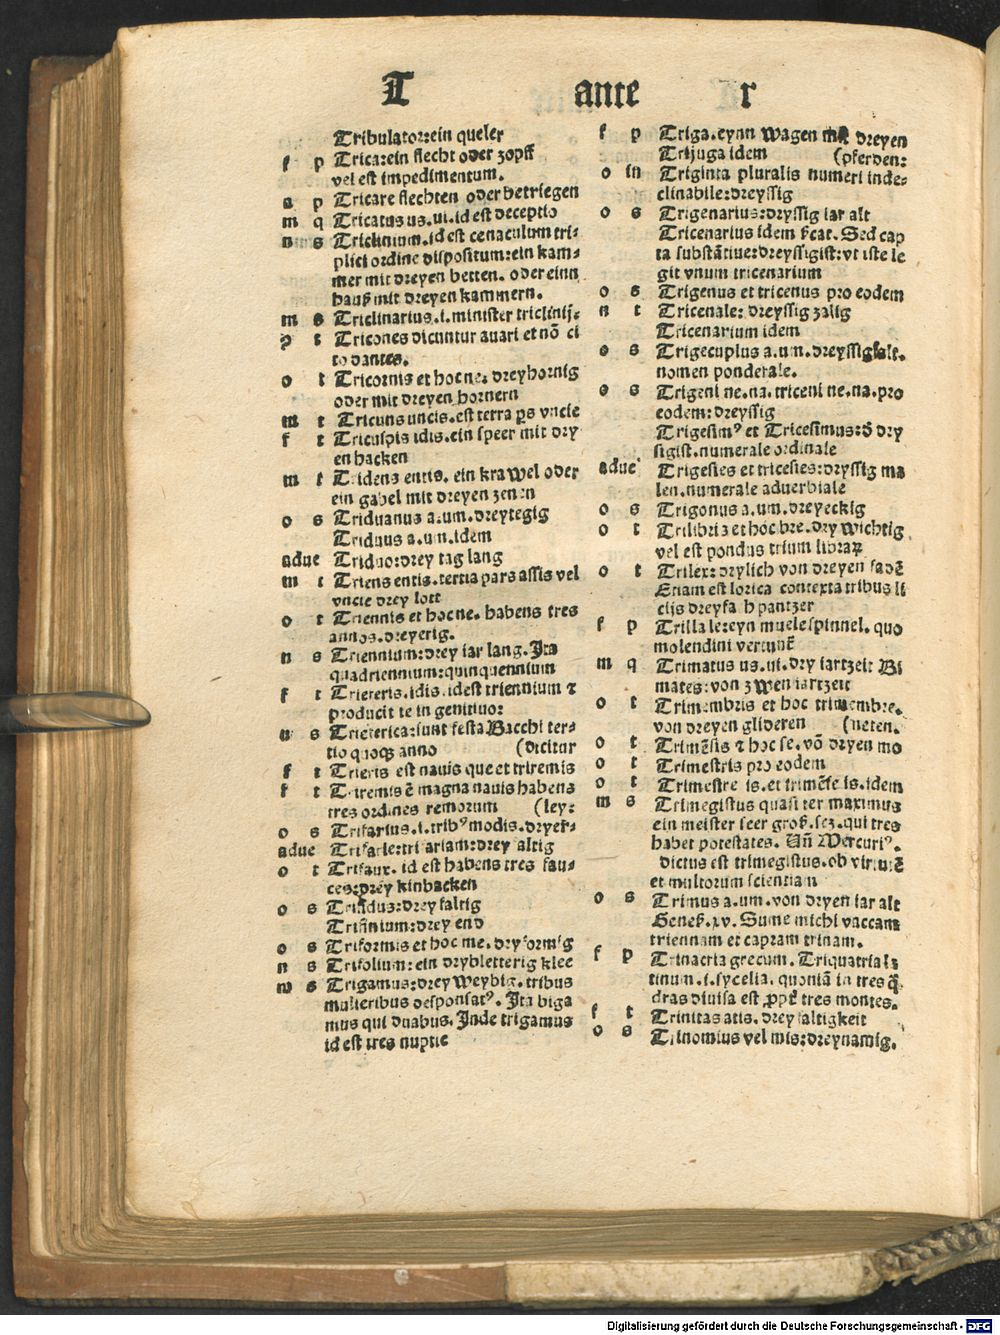 T ante r
Tribulator:ein queler
f p Trica:ein flecht oder zopff
vel est impedimentum.
a p Tricare flechten oder betriegen
m q Tricatus us.ui.id est deceptio
n s Triclinium.id est cenaculum tri-
plici ordine dispositum:ein kam-
mer mit dreyen betten. oder einn
hauß mit dreyen kammern.
m s Triclinarius.i.minister triclinij.
t Tricones dicuntur auari et nō ci
to dantes.
o t Tricornis et hoc ne. dreyhornig
oder mit dreyen hornern
m t Tricuns uncis.est terra ꝑs vncie
f t Tricuspis idis.ein speer mit dry
en hacken
m t Tridens entis. ein krawel oder
ein gabel mit dreyen zenen
o s Triduanus a.um.dreytegig
Triduus a.um.idem
adue Triduo:drey tag lang
m t Triens entis.tertia pars assis vel
vncie drey lott
o t Triennis et hoc ne. habens tres
annos.dreyerig.
n s Triennium:drey iar lang. Ita
quadriennium:quinquennium
f t Trieteris.idis.idest triennium ⁊
producit te in genitiuo:
n s Trieterica:sunt festa Bacchi ter-
tio quoqꝫ anno (dicitur
f t Trieris est nauis que et triremis
f t Triremis ē magna nauis habens
tres ordines remorum (ley:
o s Trifarius.i.tribꝰ modis.dryer-
adue Trifarie:trifariam:drey altig
o t Trifaux. id est habens tres fau-
ces:drey kinbacken
o s Trifidus:dreyfaltig
Trifinium:drey end
o s Triformis et hoc me.dryformig
n s Trifolium:ein drybletterig klee
m s Trigamus:drey weybig. tribus
mulieribus desponsatꝰ. Ita biga
mus qui duabus. Inde trigamus
id est tres nuptie
f p Triga.eynn wagen mit dreyen
Trijuga idem (pferden:
o in Triginta pluralis numeri inde-
clinabile:dreyssig
o s Trigenarius:dryssig iar alt
Tricenarius idem s̄cat. Sed cap
ta substātiue:dreyssigist:vt iste le
git vnum tricenarium
o s Trigenus et tricenus pro eodem
n t Tricenale: dreyssig zalig
Tricenarium idem
o s Trigecuplus a.um.dreyssigfalt.
nomen ponderale.
o s Trigeni ne.na.triceni ne.na.pro
eodem:dreyssig
Trigesimꝰ et Tricesimus:d̄ dry
sigist.numerale ordinale
adue Trigesies et tricesies:dryssig ma
len.numerale aduerbiale
o s Trigonus a.um.dreyeckig
o t Trilibris et hoc bre.dry wichtig
vel est pondus trium libraꝝ
o t Trilex:drylich von dreyen fadē
Etiam est lorica contexta tribus li
cijs dreyfa h pantzer
f p Trilla le:eyn muelespinnel. quo
molendini vertunt̄
m q Trimatus us.ui.dry iartzeit: Bi
mates:von zwen iartzeit
o t Trimembris et hoc trimembre.
von dreyen glideren (neten.
o t Trimēsis ⁊ hoc se.vō dryen mo
o t Trimestris pro eodem
o t Trimestre is.et trimēse is.idem
m s Trimegistus quasi ter maximus
ein meister seer groß.scz.qui tres
habet potestates. Uñ Mercuriꝰ.
dictus est trimegistus.ob virtutē
et multorum scientiam
o s Trimus a.um.von dryen iar alt
Geneß.xv. Sume michi vaccam
triennam et capram trinam.
f p Trinacria grecum. Triquatria la
tinum.i.sycelia. quoniā in tres q̄
dras diuisa est ꝓpt̄ tres montes.
f t Trinitas atis. dreyfaltigkeit
o s Trinomius vel mis:dreynamig.
Digitalisierung gefördert durch die Deutsche Forschungsgemeinschaft - DFG